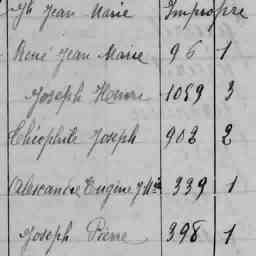 Jh Jean Marie Impropre
René Jean Marie 96 1
Joseph Henri 1059 3
Théophile Joseph 902 2
Alexandre Eugène J M 339 1
Joseph Pierre 398 1